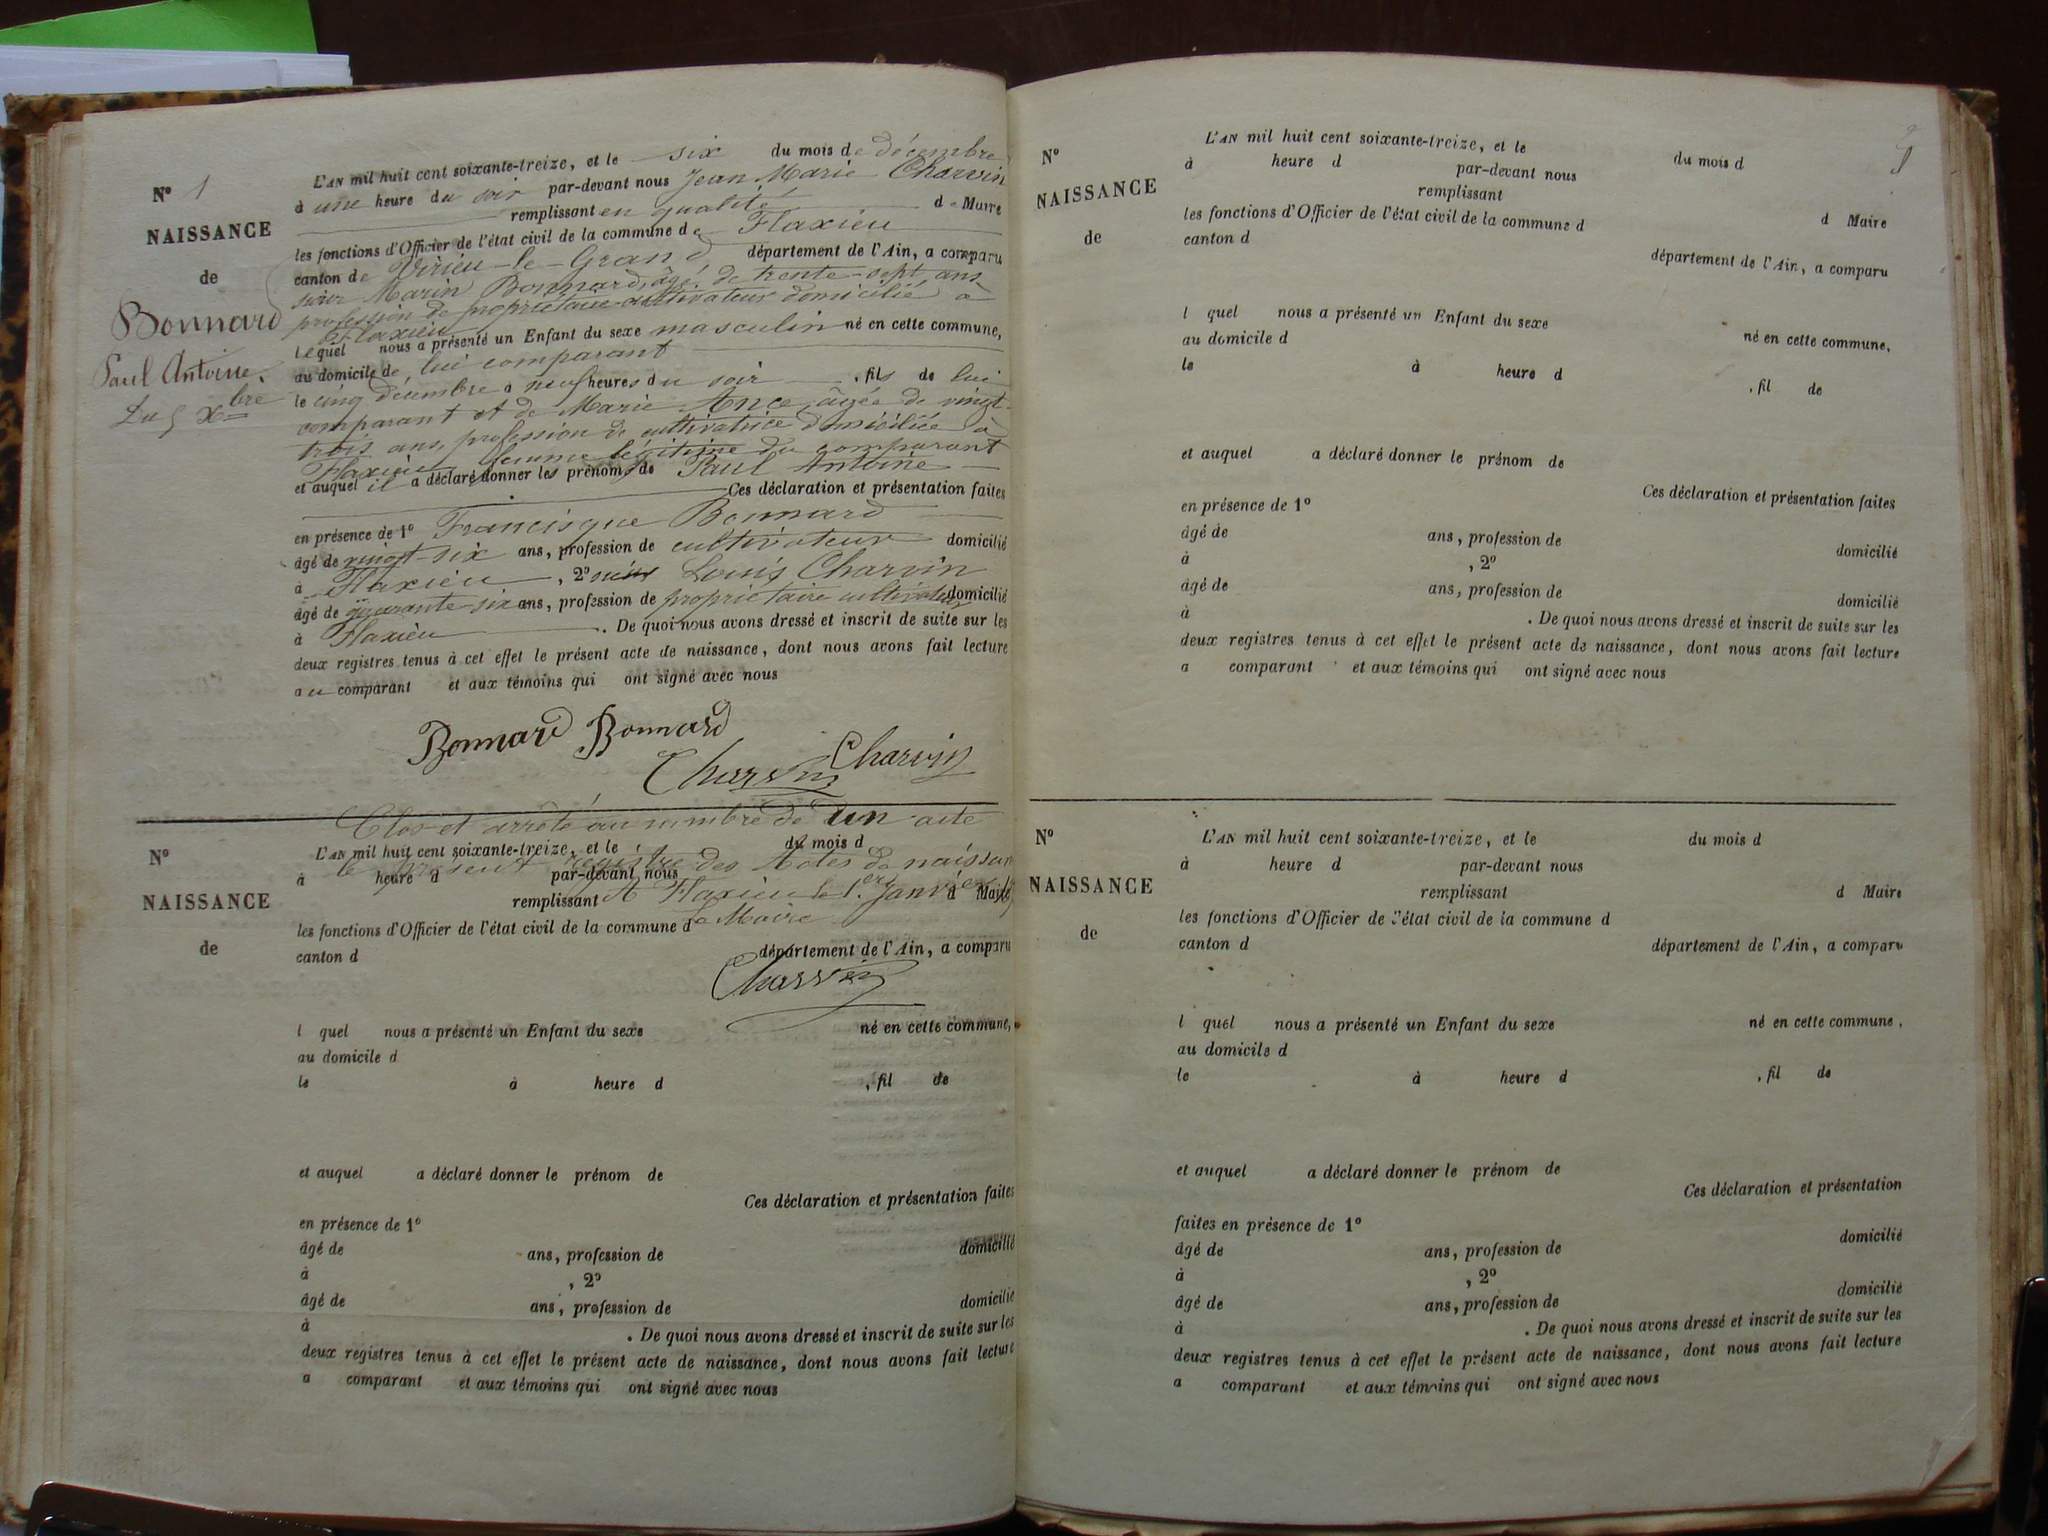 N° 1
NAISSANCE
de
Bonnard
Paul Antoine.
Du 5 Xbre
L'AN mil huit cent soixante-treize, et le six du mois de décembre
à une heure du soir par-devant nous Jean Marie Charvin
remplissant en qualité de Maire
les fonctions d'Officier de l'état civil de la commune de Flaxieu
canton de Virieu-le-Grand département de l'Ain, a comparu
sieur Marin Bonnard, âgé de trente-sept ans
profession de propriétaire-cultivateur domicilié à
Flaxieu
lequel nous a présenté un Enfant du sexe masculin né en cette commune,
au domicile de lui comparant
le cinq décembre à neuf heures du soir, fils de lui
comparant et de Marie Ance, âgée de vingt-
trois ans, profession de cultivatrice domiciliée à
Flaxieu, femme légitime du comparant
et auquel il a déclaré donner les prénoms de Paul Antoine
Ces déclaration et présentation faites
en présence de 1° Francisque Bonnard
âgé de vingt-six ans, profession de cultivateur domicilié
à Flaxieu, 2° Louis Charvin
âgé de quarante-six ans, profession de propriétaire cultivateur domicilié
à Flaxieu. De quoi nous avons dressé et inscrit de suite sur les
deux registres tenus à cet effet le présent acte de naissance, dont nous avons fait lecture
au comparant et aux témoins qui ont signé avec nous
Bonnard Bonnard
Charvin Charvin
Clos et arrêté au nombre de un acte
N°
NAISSANCE
de
L'AN mil huit cent soixante-treize, et le du mois d
le présent registre des Actes de naissan
à heure d par-devant nous
A Flaxieu le 1er Janvier
remplissant d Maire
Le Maire
les fonctions d'Officier de l'état civil de la commune d
canton d département de l'Ain, a comparu
Charvin
l quel nous a présenté un Enfant du sexe né en cette commune,
au domicile d
le à heure d , fil de
et auquel a déclaré donner le prénom de
Ces déclaration et présentation faites
en présence de 1°
âgé de ans, profession de domicilié
à , 2°
âgé de ans, profession de domicilié
à . De quoi nous avons dressé et inscrit de suite sur les
deux registres tenus à cet effet le présent acte de naissance, dont nous avons fait lecture
a comparant et aux témoins qui ont signé avec nous
N°
NAISSANCE
de
L'AN mil huit cent soixante-treize, et le du mois d
à heure d par-devant nous
remplissant d Maire
les fonctions d'Officier de l'état civil de la commune d
canton d département de l'Ain, a comparu
l quel nous a présenté un Enfant du sexe né en cette commune,
au domicile d
le à heure d , fil de
et auquel a déclaré donner le prénom de
Ces déclaration et présentation faites
en présence de 1°
âgé de ans, profession de domicilié
à , 2°
âgé de ans, profession de domicilié
à . De quoi nous avons dressé et inscrit de suite sur les
deux registres tenus à cet effet le présent acte de naissance, dont nous avons fait lecture
a comparant et aux témoins qui ont signé avec nous
N°
NAISSANCE
de
L'AN mil huit cent soixante-treize, et le du mois d
à heure d par-devant nous
remplissant d Maire
les fonctions d'Officier de l'état civil de la commune d
canton d département de l'Ain, a comparu
l quel nous a présenté un Enfant du sexe né en cette commune,
au domicile d
le à heure d , fil de
et auquel a déclaré donner le prénom de
Ces déclaration et présentation
faites en présence de 1°
âgé de ans, profession de domicilié
à , 2°
âgé de ans, profession de domicilié
à . De quoi nous avons dressé et inscrit de suite sur les
deux registres tenus à cet effet le présent acte de naissance, dont nous avons fait lecture
a comparant et aux témoins qui ont signé avec nous